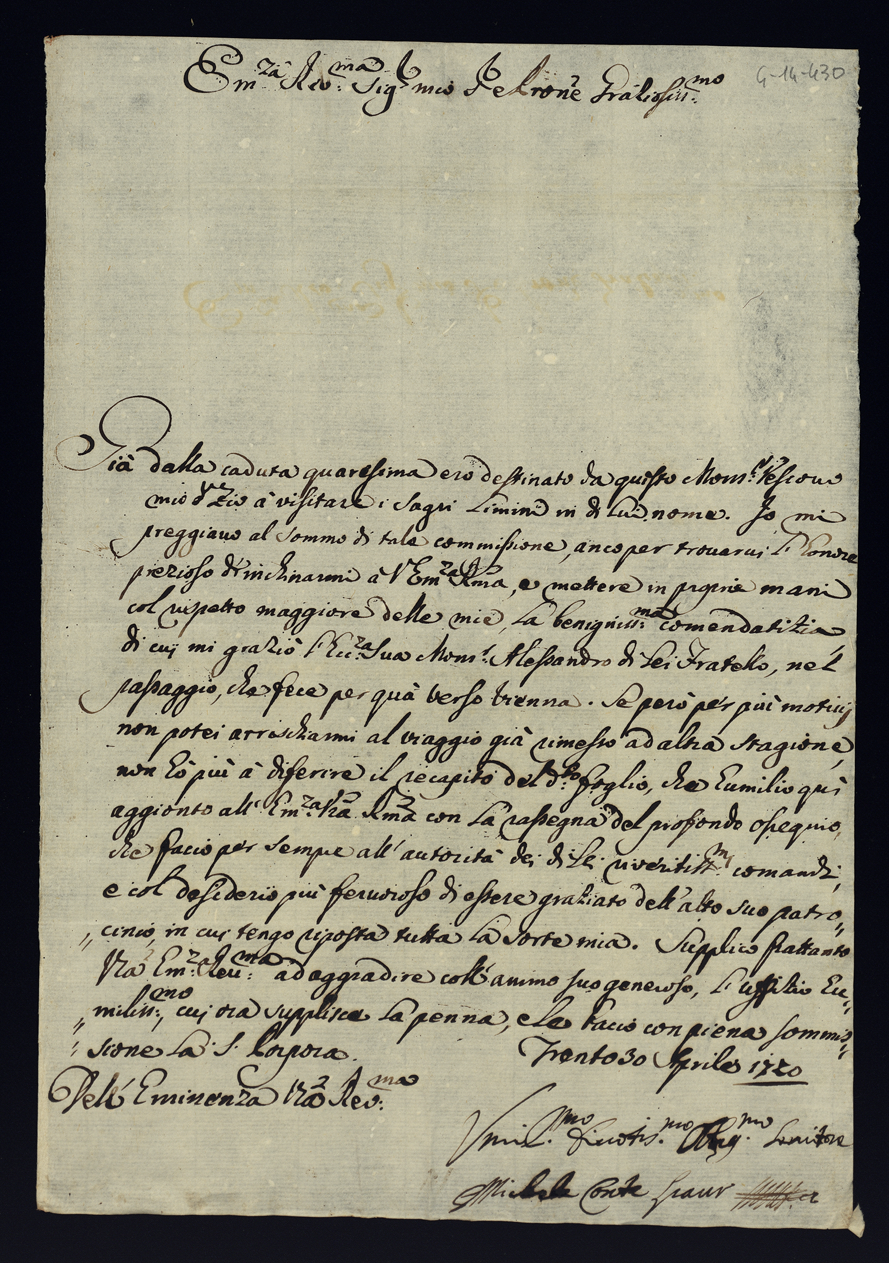 G-14-430
Em.za Rev.ma Sig.r mio Padrone Gratiosiss.mo
Già dalla caduta quaresima ero destinato da questo Mons.r Vescovo
mio Zio à visitare i Sagri Limini in di Lui nome. Io mi
preggiavo al sommo di tale commissione, anco per trovarvi l'honore
prezioso d'inchinarmi à V. Em.za R.ma, e mettere in proprie mani
col rispetto maggiore delle mie, la benigniss.ma comendatizia
di cui mi graziò l'Ecc.za Sua Mons.r Alessandro di Lei Fratello, nel
passaggio, che fece per quà verso Vienna. Se però per più motivj
non potei arrischarmi al viaggio già rimesso ad altra stagione,
non hò più à diferire il recapito del d.to foglio, che humilio quì
aggionto all' Em.za V.ra R.ma con la rassegna del profondo ossequio,
che facio per sempre all' autorità dei di Lei riveritiss.mi comandi,
e col desiderio più fervoroso di essere graziato dell' alto suo patro„
„cinio, in cui tengo riposta tutta la sorte mia. Supplico frattanto
V.ra Em.za Reu.ma ad aggradire coll' animo suo generoso, l' uffizio hu„
„miliss.mo, cui ora supplisce la penna, e le bacio con piena sommis„
„sione la S. Porpora.
Trento 30 Aprile 1720
Dell' Eminenza V.ra Rev.ma
Umil.mo Divotis.mo Oblig.mo Servitore
Michele Conte